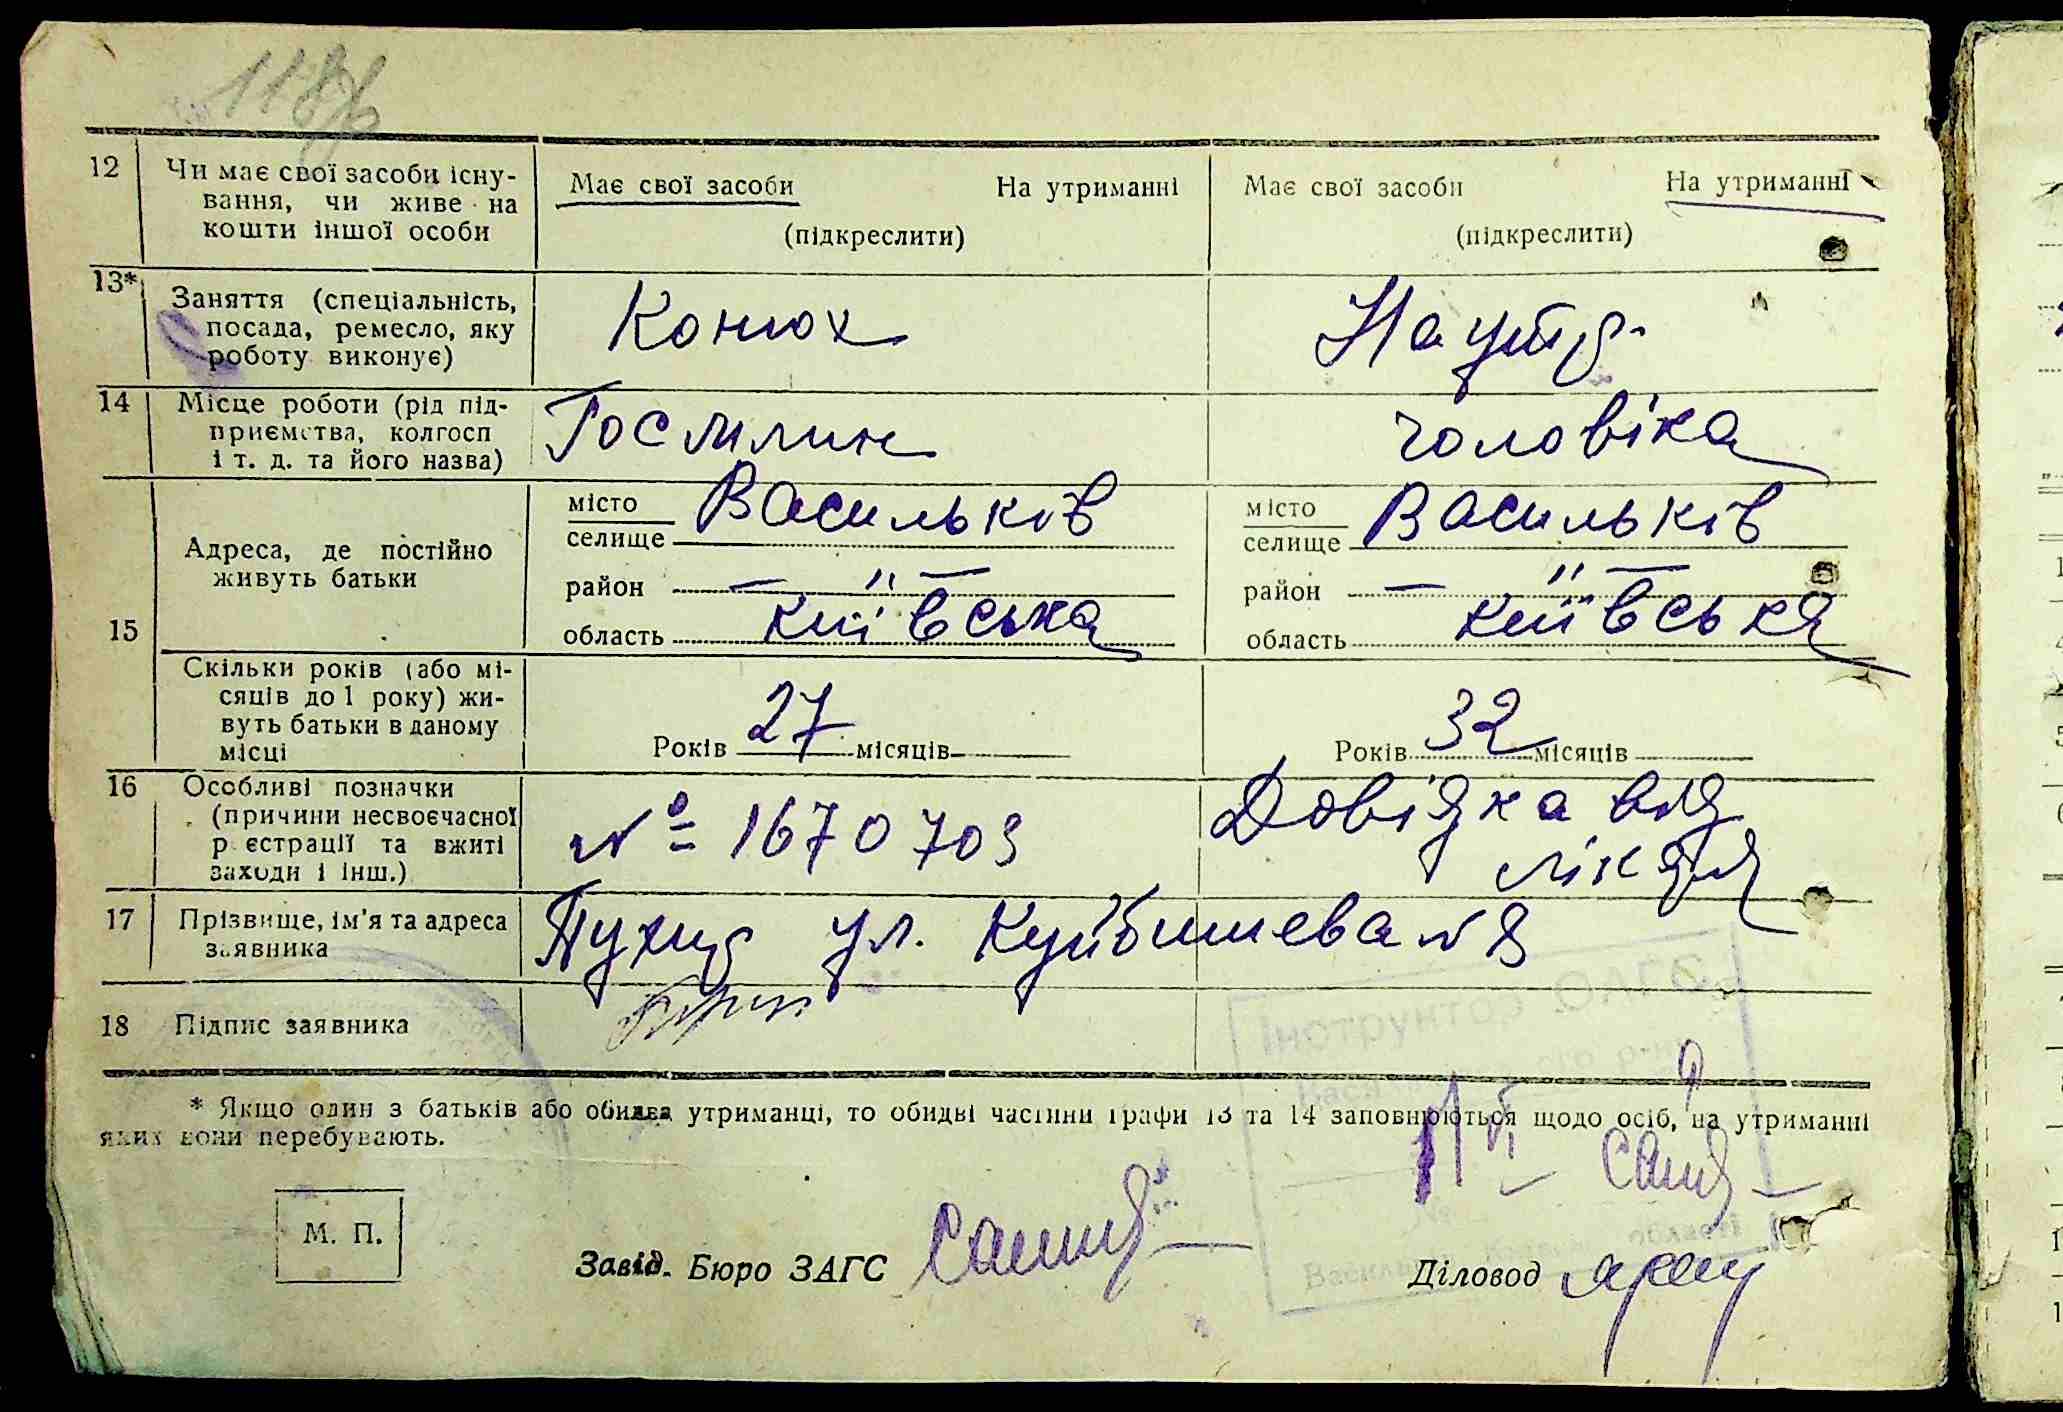 118
12 Чи має свої засоби існу- Має свої засоби На утриманні Має свої засоби На утриманні
вання, чи живе на
кошти іншої особи (підкреслити) (підкреслити)
13* Заняття (спеціальність, Конюх На утр.
посада, ремесло, яку
роботу виконує)
14 Місце роботи (рід під- Госмлин чоловіка
приємства, колгосп
і т. д. та його назва)
15 Адреса, де постійно місто Васильків місто Васильків
живуть батьки селище селище
район — " — район — " —
область київська область київська
Скільки років (або мі-
сяців до 1 року) жи-
вуть батьки в даному
місці Років 27 місяців Років 32 місяців
16 Особливі позначки Довідка від
(причини несвоєчасної № 1670703 лікаря
реєстрації та вжиті
заходи і інш.)
17 Прізвище, ім'я та адреса ул. Куйбишева №
заявника
18 Підпис заявника
Інструктор ЗАГС
р-ну
* Якщо один з батьків або обидва утриманці, то обидві частини графи 13 та 14 заповнюються щодо осіб, на утриманні
яких вони перебувають.
області
М. П.
Завід. Бюро ЗАГС Діловод